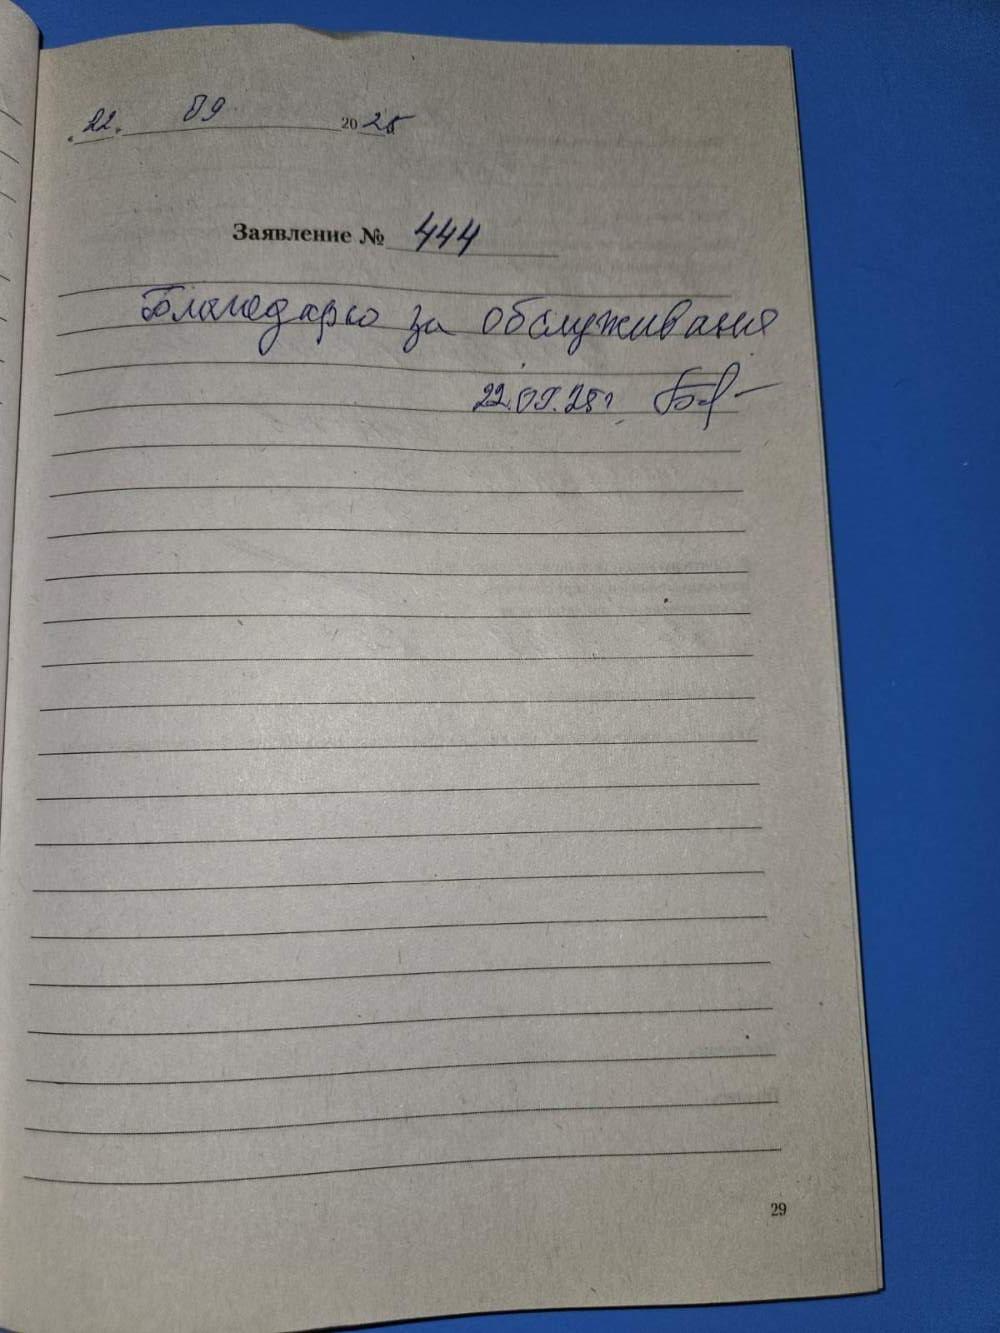 «22» 09 2025
Заявление № 444
Благодарю за обслуживание
22.09.25г
29